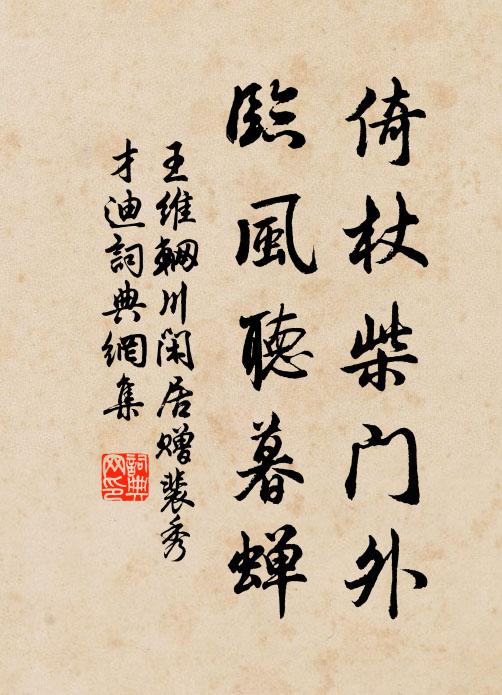 倚杖柴門外
臨風聽暮蟬
王維輞川閑居贈裴秀
才迪詞典網集
詞典網印